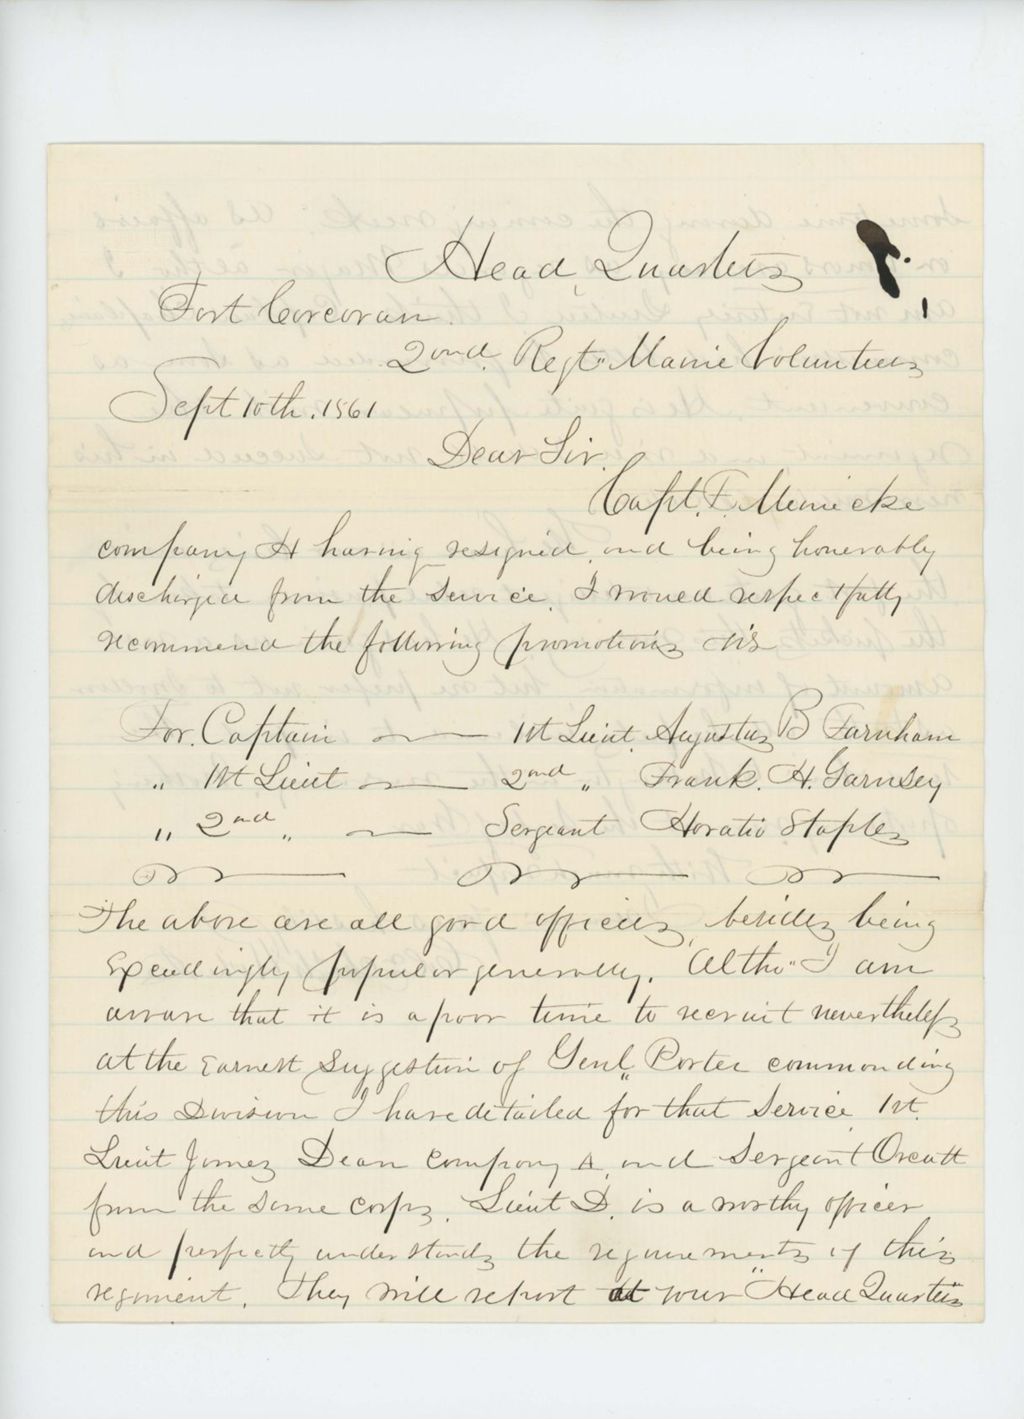 Head Quarters
Fort Corcoran
2ond. Regt" Maine Volunteers
Sept 10th. 1861
Dear Sir.
Capt. F. Meinecke
company H having resigned and being honerably
discharged from the service, I would respectfully
recommend the following promotions viz
For. Captain — 1st Lieut. Augustus B Farnham
" 1st Lieut — 2nd " Frank. H. Garnsey
" 2nd " — Sergeant Horatio Staples
The above are all good officers, besides being
Exceedingly popular generally. Altho" I am
aware that it is a poor time to recruit nevertheless
at the Earnest Suggestion of Genl" Porter commanding
this Division I have detailed for that Service 1st.
Lieut James Dean Company A, and Sergeant Orcutt
from the same corps. Lieut D. is a worthy officer
and perfectly understands the requirements of this
regiment. They will report at your "Head Quarters"